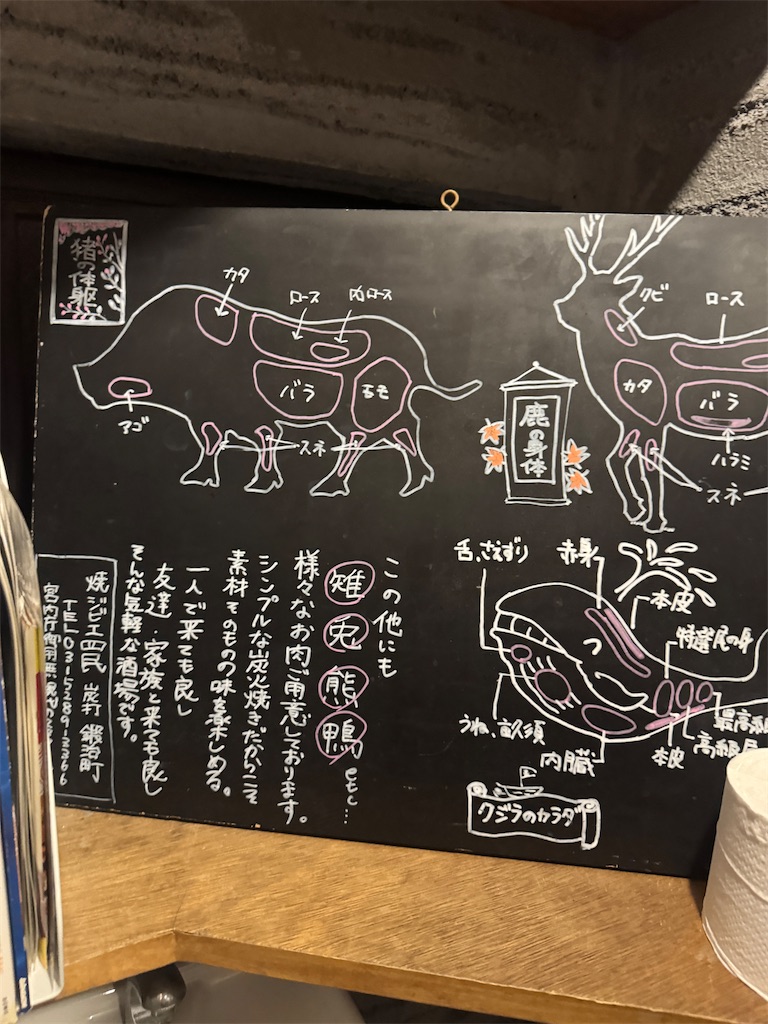 猪の体躯
カタ
ロース
内ロース
バラ
モモ
アゴ
スネ
鹿の身体
クビ
ロース
カタ
バラ
ハラミ
スネ
この他にも
雉
兎
熊
鴨
もも…
様々なお肉ご用意しております。
シンプルな炭火焼きだからこそ
素材そのものの味を楽しめる。
一人で来ても良し
友達・家族と来ても良し
そんな気軽な酒場です。
焼ジビエ 罠 炭打 鍛冶町
舌、さえずり
赤身
本皮
特選尾の身
うね、畝須
内臓
本皮
クジラのカラダ